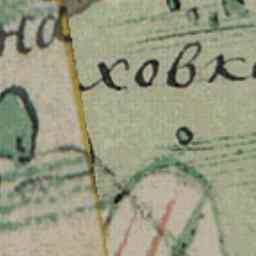 на
ховка